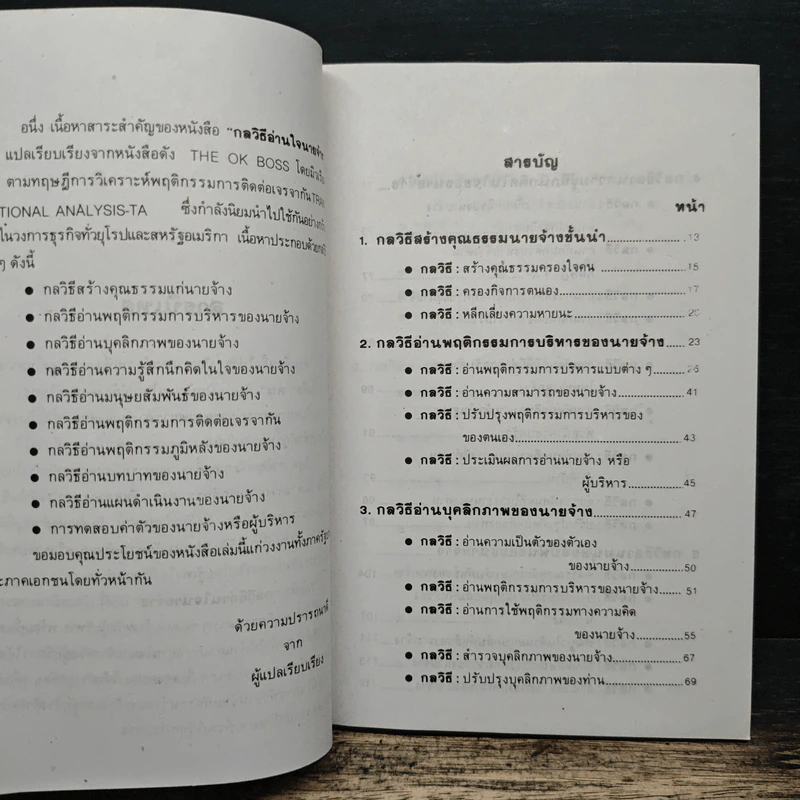 อนึ่ง เนื้อหาสาระสำคัญของหนังสือ "กลวิธีอ่านใจนายจ้าง
แปลเรียบเรียงจากหนังสือดัง THE OK BOSS โดยมิวเรียล
ตามทฤษฎีการวิเคราะห์พฤติกรรมการติดต่อเจรจากัน TRAN
TIONAL ANALYSIS-TA ซึ่งกำลังนิยมนำไปใช้กันอย่าง
ในวงการธุรกิจทั่วยุโรปและสหรัฐอเมริกา เนื้อหาประกอบด้วย
ๆ ดังนี้
● กลวิธีสร้างคุณธรรมแก่นายจ้าง
● กลวิธีอ่านพฤติกรรมการบริหารของนายจ้าง
● กลวิธีอ่านบุคลิกภาพของนายจ้าง
● กลวิธีอ่านความรู้สึกนึกคิดในใจของนายจ้าง
● กลวิธีอ่านมนุษยสัมพันธ์ของนายจ้าง
● กลวิธีอ่านพฤติกรรมการติดต่อเจรจากัน
● กลวิธีอ่านพฤติกรรมภูมิหลังของนายจ้าง
● กลวิธีอ่านบทบาทของนายจ้าง
● กลวิธีอ่านแผนดำเนินงานของนายจ้าง
● การทดสอบค่าตัวของนายจ้างหรือผู้บริหาร
ขอมอบคุณประโยชน์ของหนังสือเล่มนี้แก่วงงานทั้งภาครัฐ
ะภาคเอกชนโดยทั่วหน้ากัน
ด้วยความปรารถนาดี
จาก
ผู้แปลเรียบเรียง
สารบัญ
หน้า
1. กลวิธีสร้างคุณธรรมนายจ้างขั้นนำ ........ 13
● กลวิธี : สร้างคุณธรรมครองใจคน ........ 15
● กลวิธี : ครองกิจการตนเอง ........ 17
● กลวิธี : หลีกเลี่ยงความหายนะ ........ 20
2. กลวิธีอ่านพฤติกรรมการบริหารของนายจ้าง ...... 23
● กลวิธี : อ่านพฤติกรรมการบริหารแบบต่าง ๆ ...... 26
● กลวิธี : อ่านความสามารถของนายจ้าง ........ 41
● กลวิธี : ปรับปรุงพฤติกรรมการบริหารของ
ของตนเอง ........ 43
● กลวิธี : ประเมินผลการอ่านนายจ้าง หรือ
ผู้บริหาร ........ 45
3. กลวิธีอ่านบุคลิกภาพของนายจ้าง ........ 47
● กลวิธี : อ่านความเป็นตัวของตัวเอง
ของนายจ้าง ........ 50
● กลวิธี : อ่านพฤติกรรมการบริหารของนายจ้าง ...... 51
● กลวิธี : อ่านการใช้พฤติกรรมทางความคิด
ของนายจ้าง ........ 55
● กลวิธี : สำรวจบุคลิกภาพของนายจ้าง ........ 67
● กลวิธี : ปรับปรุงบุคลิกภาพของท่าน ........ 69